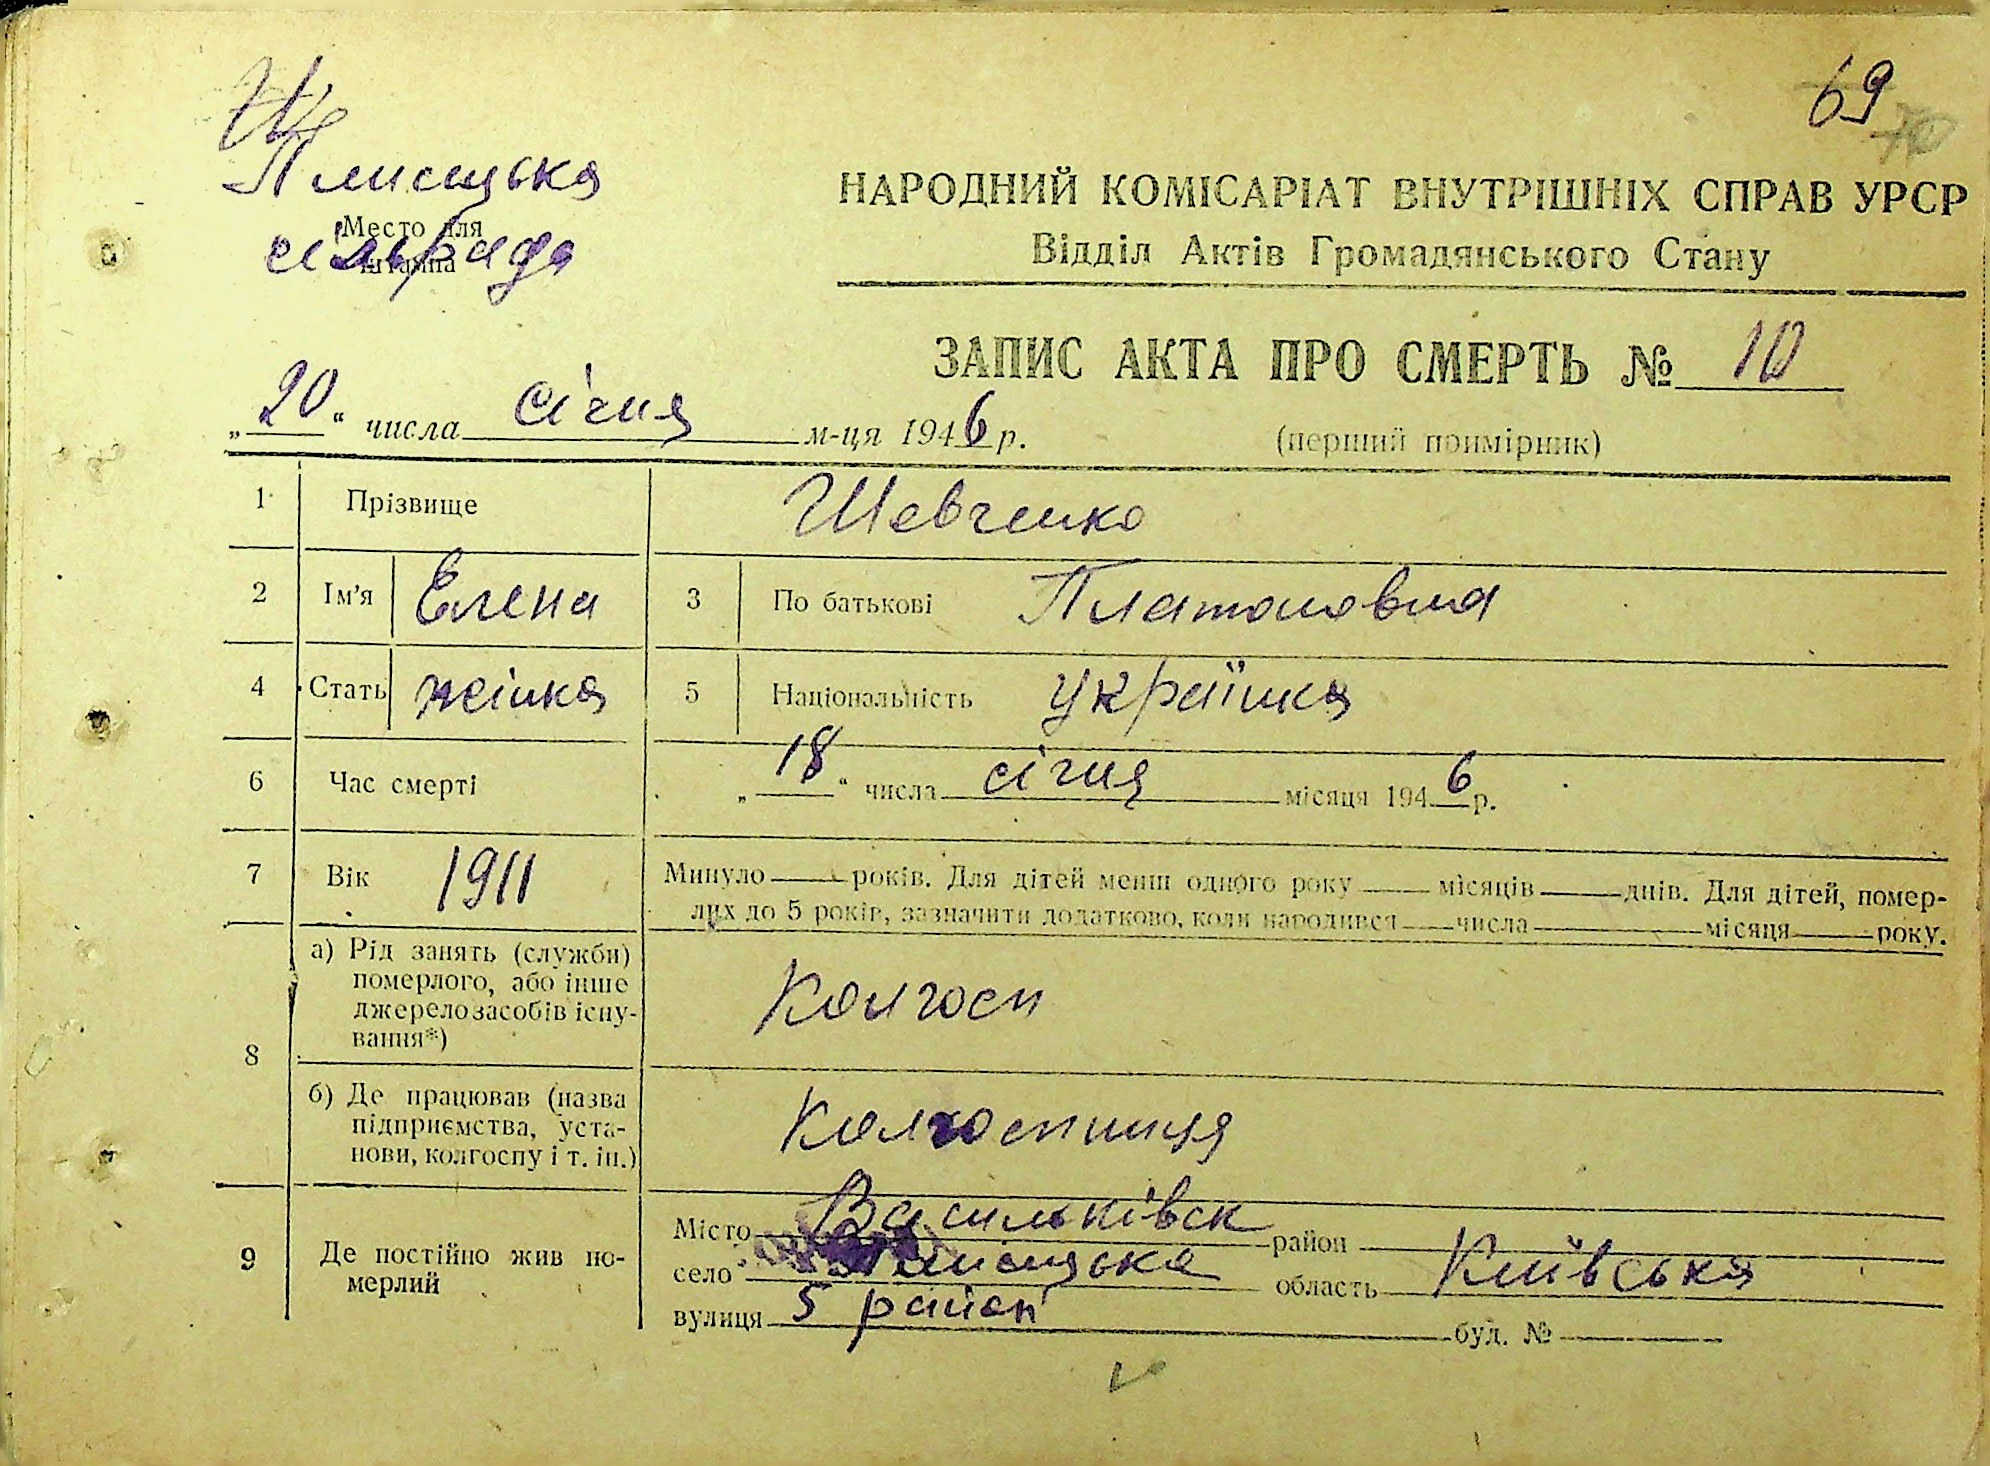 69
Плисецька
Место для
сільрада
штампа
НАРОДНИЙ КОМІСАРІАТ ВНУТРІШНІХ СПРАВ УРСР
Відділ Актів Громадянського Стану
ЗАПИС АКТА ПРО СМЕРТЬ № 10
„20“ числа січня м-ця 1946 р.
(перший примірник)
1 Прізвище Шевченко
2 Ім'я Елена 3 По батькові Платоновна
4 Стать жінка 5 Національність українка
6 Час смерті „18“ числа січня місяця 1946 р.
7 Вік 1911 Минуло років. Для дітей менш одного року місяців днів. Для дітей, помер-
лих до 5 років, зазначити додатково, коли народився числа місяця року.
8 а) Рід занять (служби)
померлого, або інше
джерело засобів існу-
вання*)
Колгосп
б) Де працював (назва
підприємства, уста-
нови, колгоспу і т. ін.)
Колгоспниця
9 Де постійно жив по-
мерлий
Місто Васильківск район
село Плисецька область Київська
вулиця 5 район буд. №